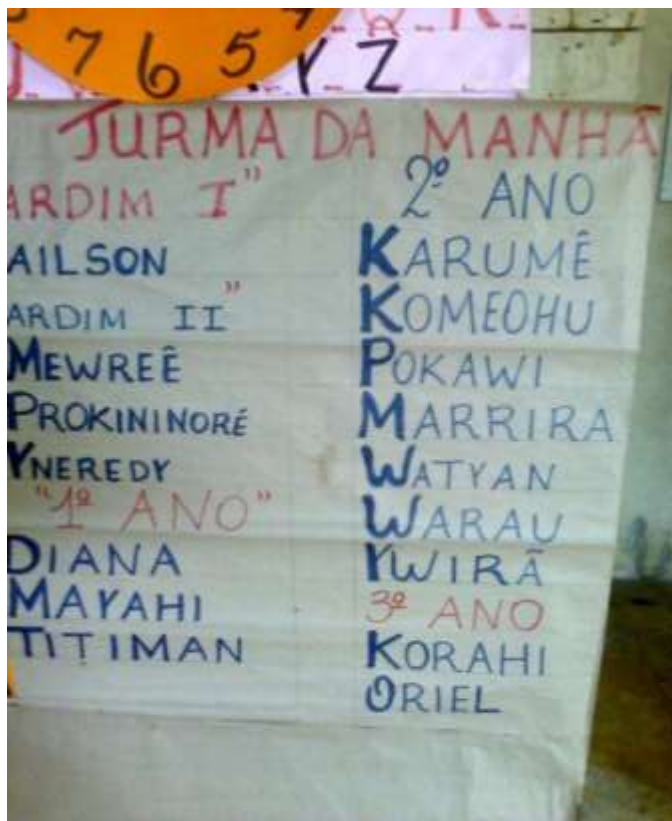 7 6 5
Y Z
TURMA DA MANHÃ
ARDIM I"
AILSON
ARDIM II"
MEWREÊ
PROKININORÉ
YNEREDY
"1º ANO"
DIANA
MAYAHI
TITIMAN
2º ANO
KARUMÊ
KOMEOHU
POKAWI
MARRIRA
WATYAN
WARAU
YWIRÃ
3º ANO
KORAHI
ORIEL